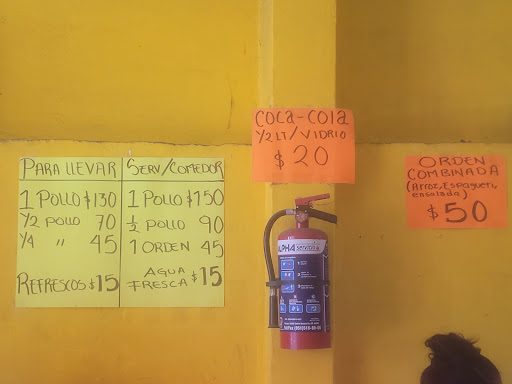 COCA-COLA
1/2 LT/VIDRIO
$20
PARA LLEVAR
1 POLLO $130
1/2 POLLO 70
1/4 " 45
REFRESCOS $15
SERV/COMEDOR
1 POLLO $150
1/2 POLLO 90
1 ORDEN 45
AGUA
FRESCA $15
ORDEN
COMBINADA
(Arroz, Espagueti,
ensalada)
$50
ALPHA